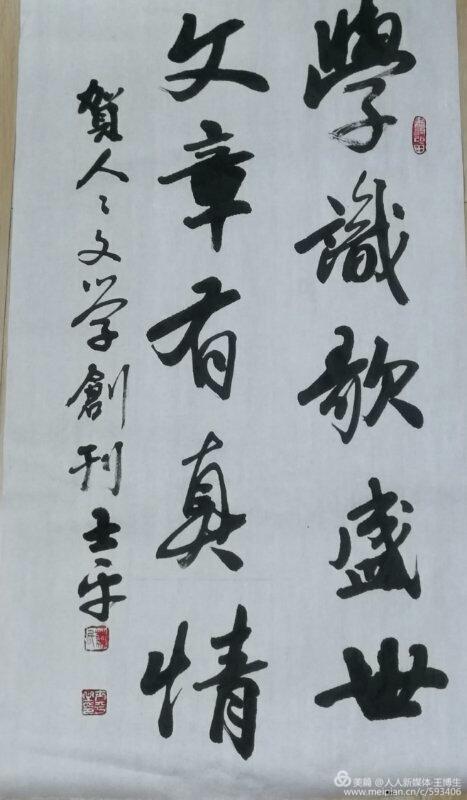 學識歌盛世
文章有真情
賀人々文学創刊士平
美篇 @人人新媒体·王博生
www.meipian.cn/c/593406